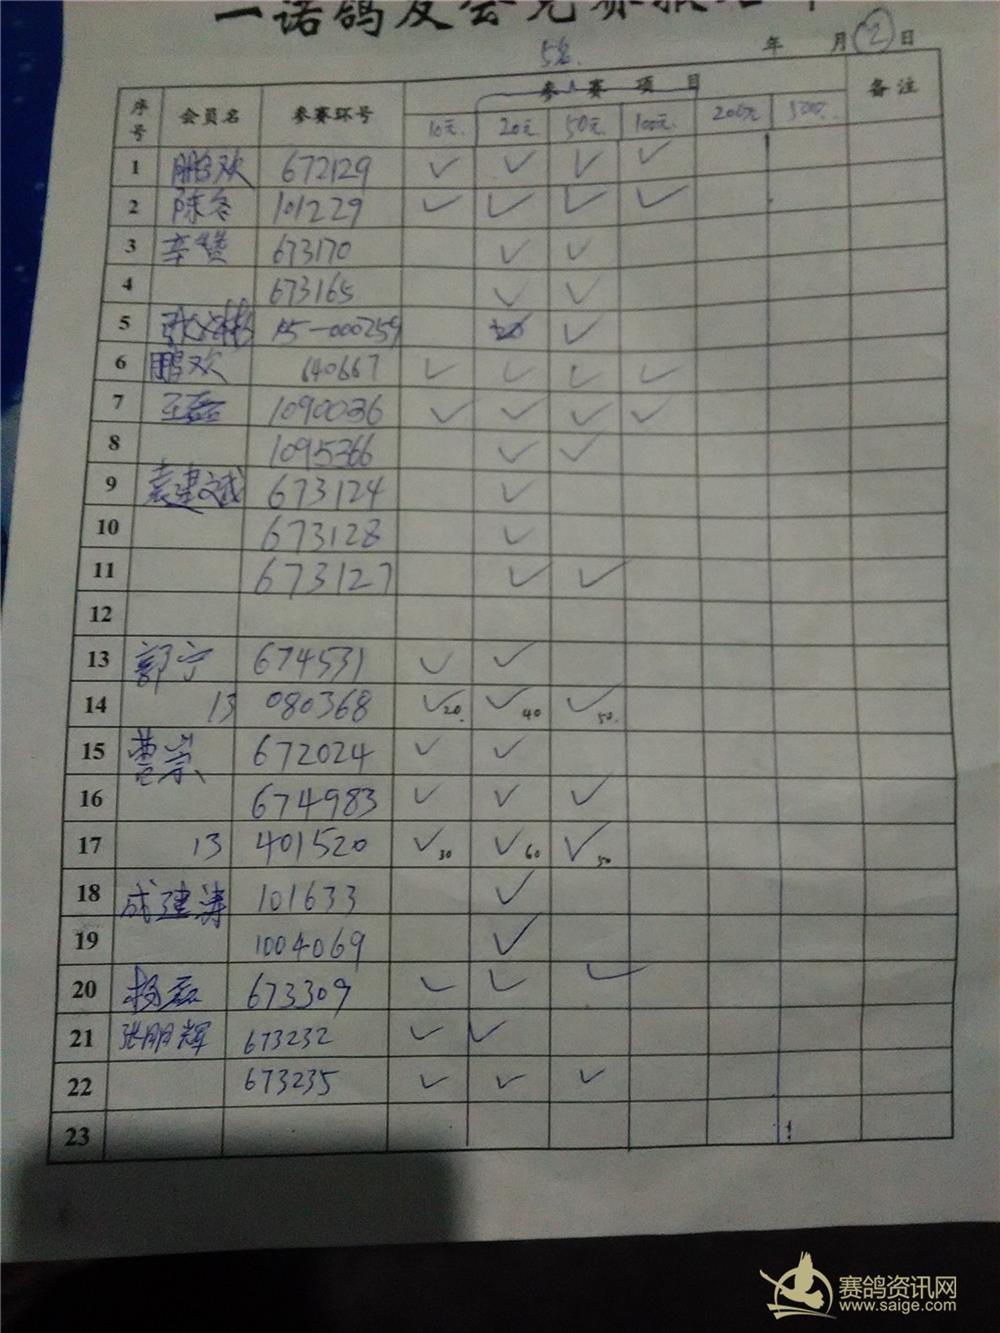 一诺鸽友会
5% 年 月 ② 日
序号 会员名 参赛环号 参赛项目 备注
10元. 20元 50元. 100元. 200元 500元.
1 鹏欢 672129 ✓ ✓ ✓ ✓
2 陈冬 101229 ✓ ✓ ✓ ✓
3 辛赞 673170 ✓ ✓
4 673165 ✓ ✓
5 15-000259 ✓
6 鹏欢 640667 ✓ ✓ ✓ ✓
7 王磊 1090036 ✓ ✓ ✓ ✓
8 1095366 ✓ ✓
9 袁建斌 673124 ✓
10 673128 ✓
11 673127 ✓ ✓
12
13 郭宁 674531 ✓ ✓
14 13 080368 ✓20. ✓40 ✓50.
15 曹崇 672024 ✓ ✓
16 674983 ✓ ✓ ✓
17 13 401520 ✓30 ✓60 ✓50
18 成建涛 101633 ✓
19 1004069 ✓
20 杨磊 673309 ✓ ✓ ✓
21 张朋辉 673232 ✓ ✓
22 673235 ✓ ✓ ✓
23
赛鸽资讯网
www.saige.com